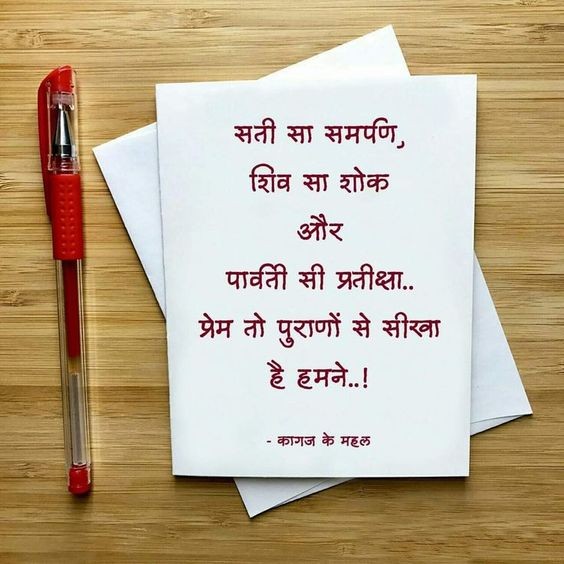 सती सा समर्पण,
शिव सा शोक
और
पार्वती सी प्रतीक्षा..
प्रेम तो पुराणों से सीखा
है हमने..!
- कागज के महल